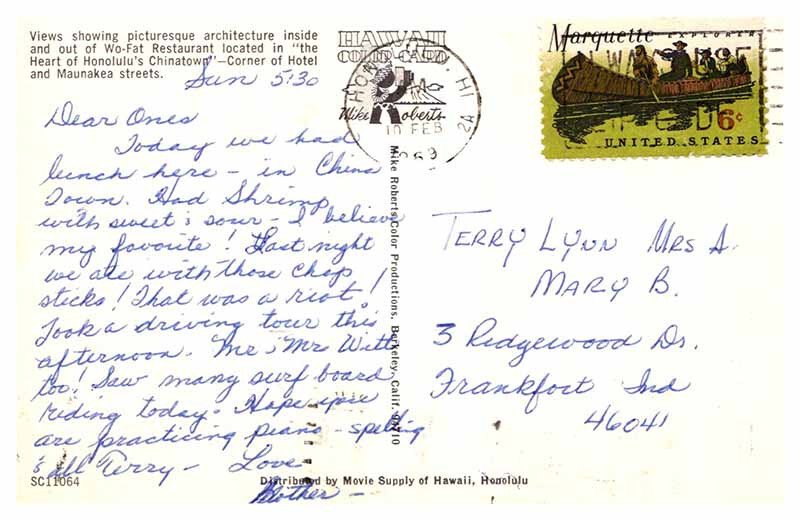 Views showing picturesque architecture inside
and out of Wo-Fat Restaurant located in "the
Heart of Honolulu's Chinatown"—Corner of Hotel
and Maunakea streets.
Sun 5:30
Dear Ones
Today we had
lunch here – in China
Town. Had Shrimp
with sweet & sour – I believe
my favorite! Last night
we ate with those chop
sticks! That was a riot!
Took a driving tour this
afternoon. Mr & Mrs Witt
too! Saw many surf board
riding today. Hope
are practicing piano – spelling
& all Terry – Love
SC11064
Distributed by Movie Supply of Hawaii, Honolulu
Mike Roberts Color Productions, Berkeley, Calif.
HAWAII
COLOR-CARD
Mike Roberts
HI
10 FEB
Marquette EXPLORER
6c
UNITED STATES
TERRY LYNN MRS A.
MARY B.
3 Ridgewood Dr.
Frankfort Ind
46041